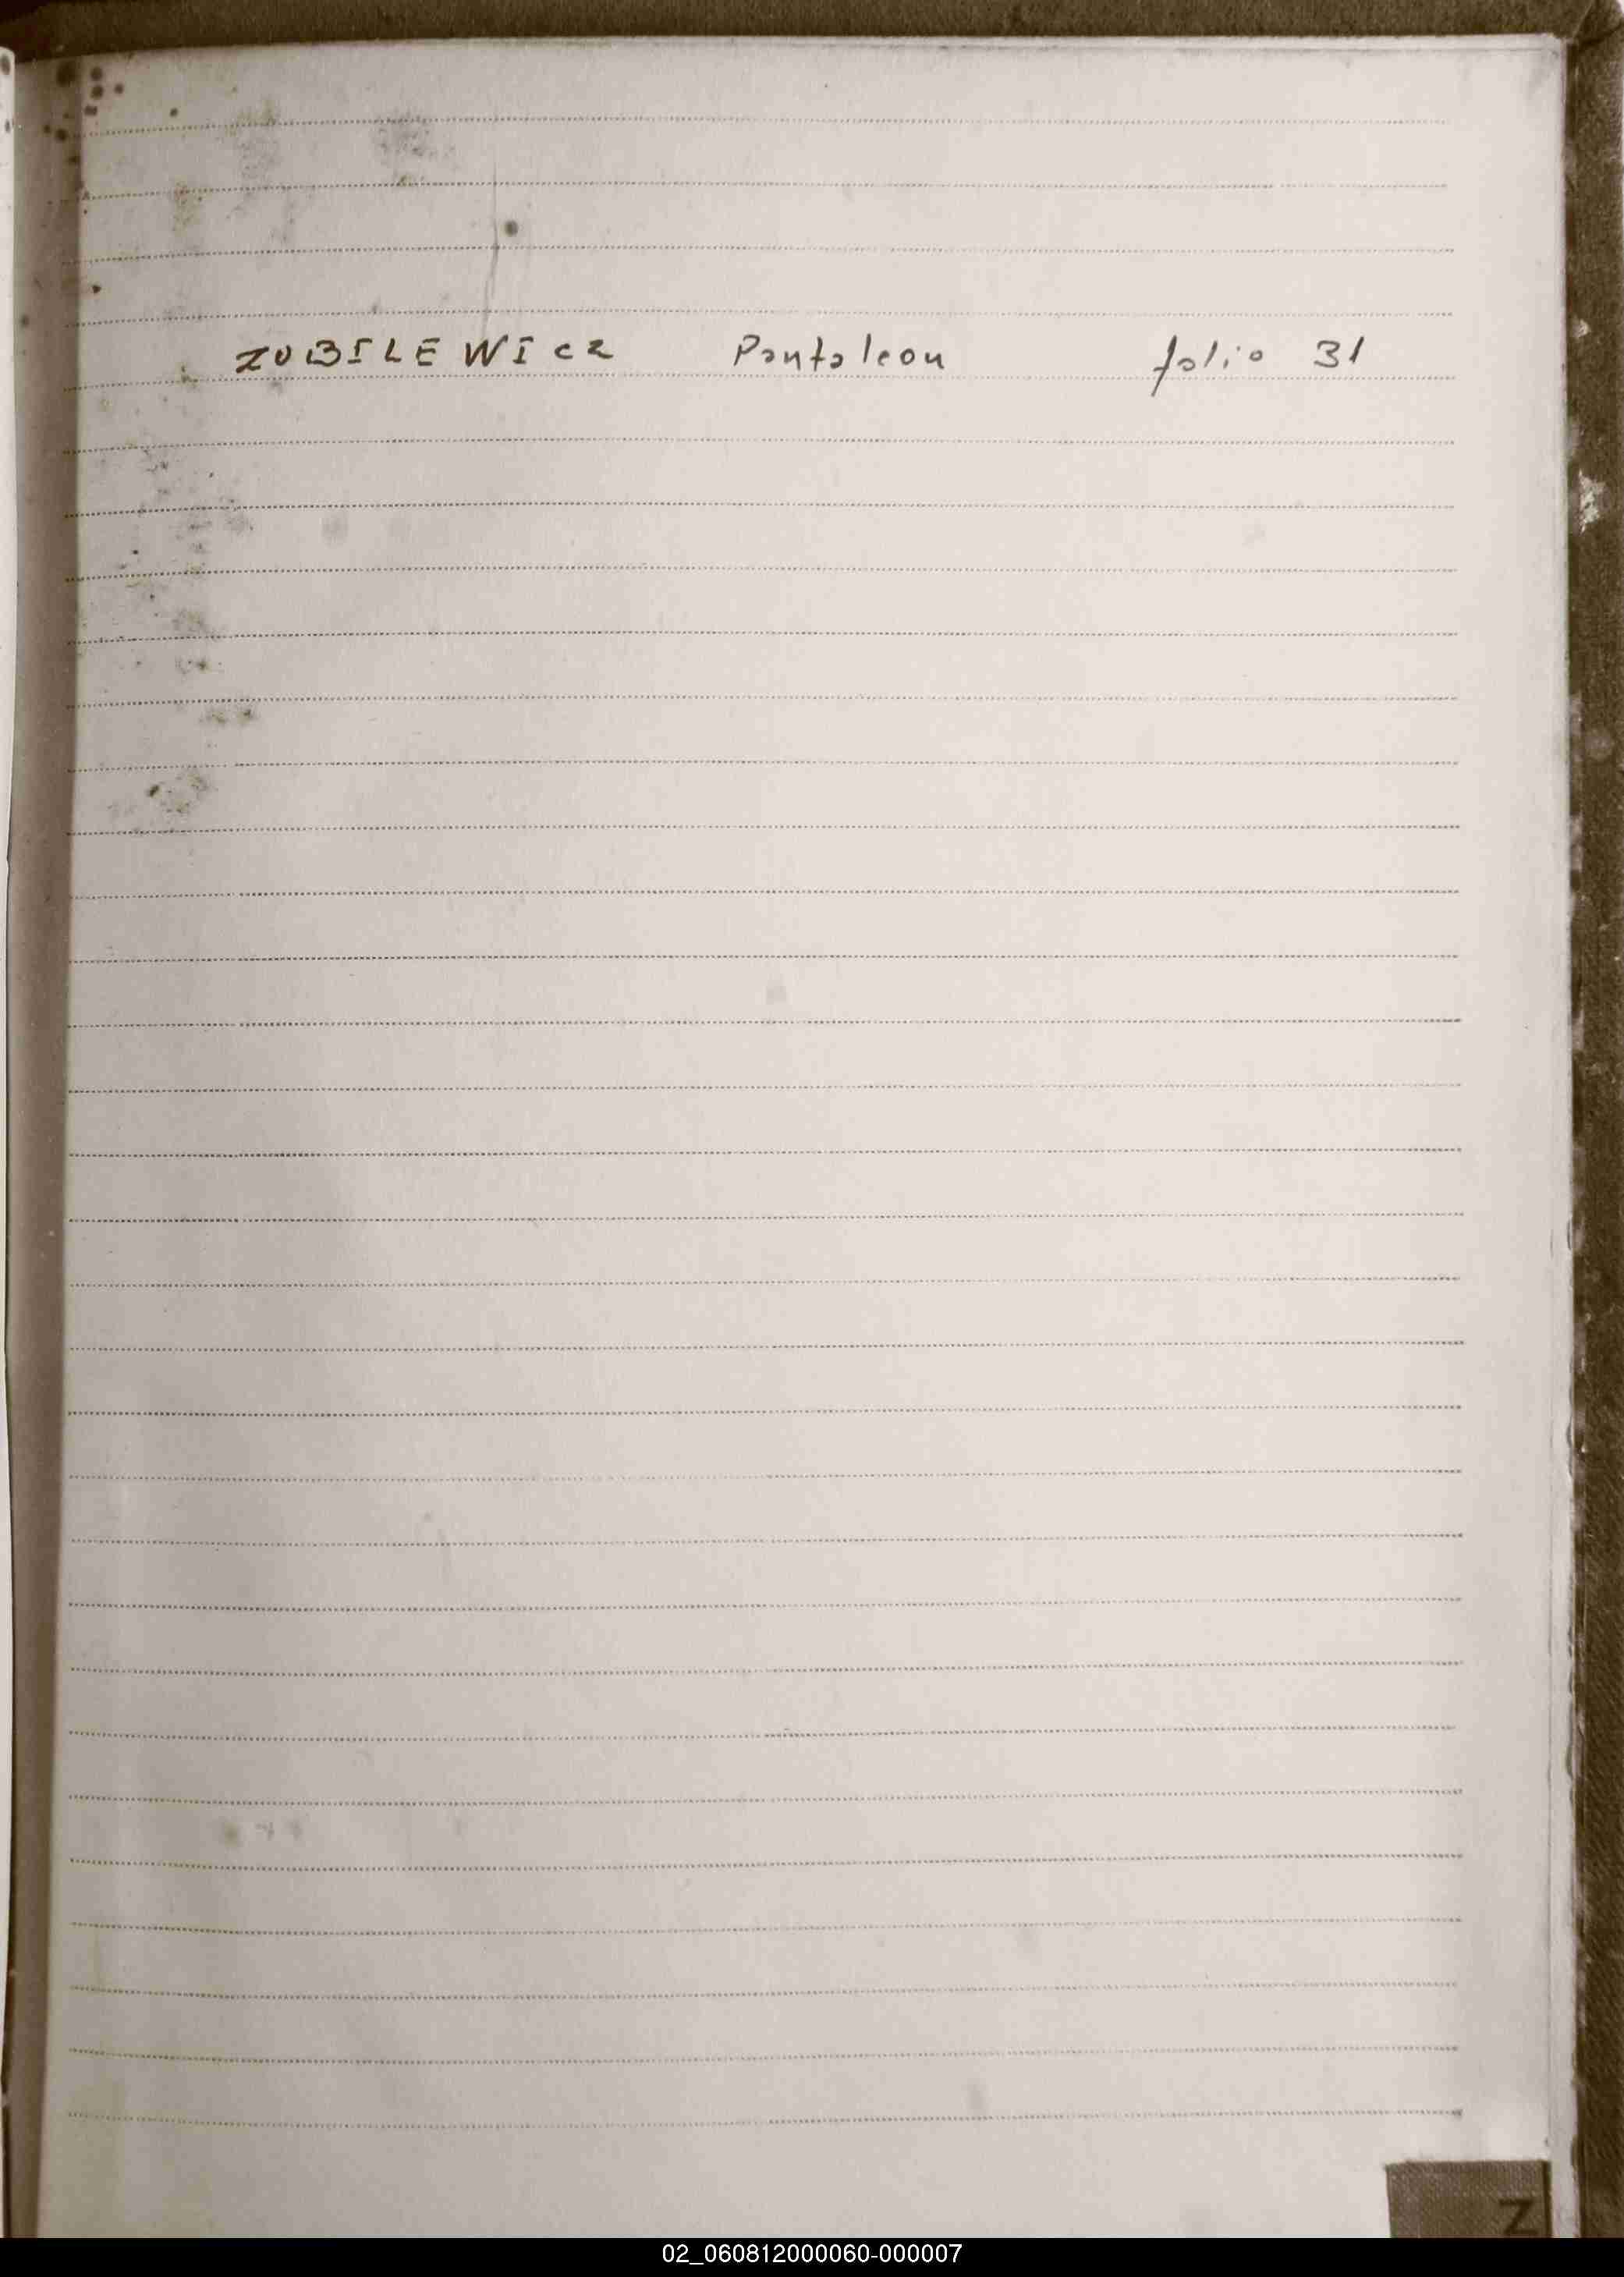 ZUBILEWICZ Pantaleon folio 31
Z
02_060812000060-000007